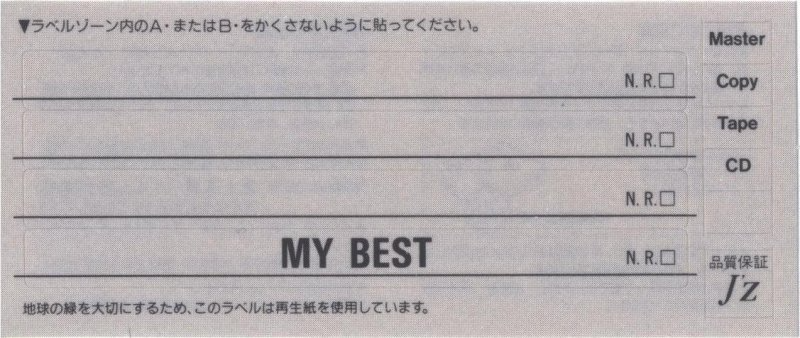 ▼ラベルゾーン内のA・またはB・をかくさないように貼ってください。
N.R.□
N.R.□
N.R.□
MY BEST N.R.□
地球の緑を大切にするため、このラベルは再生紙を使用しています。
Master
Copy
Tape
CD
品質保証
J'z